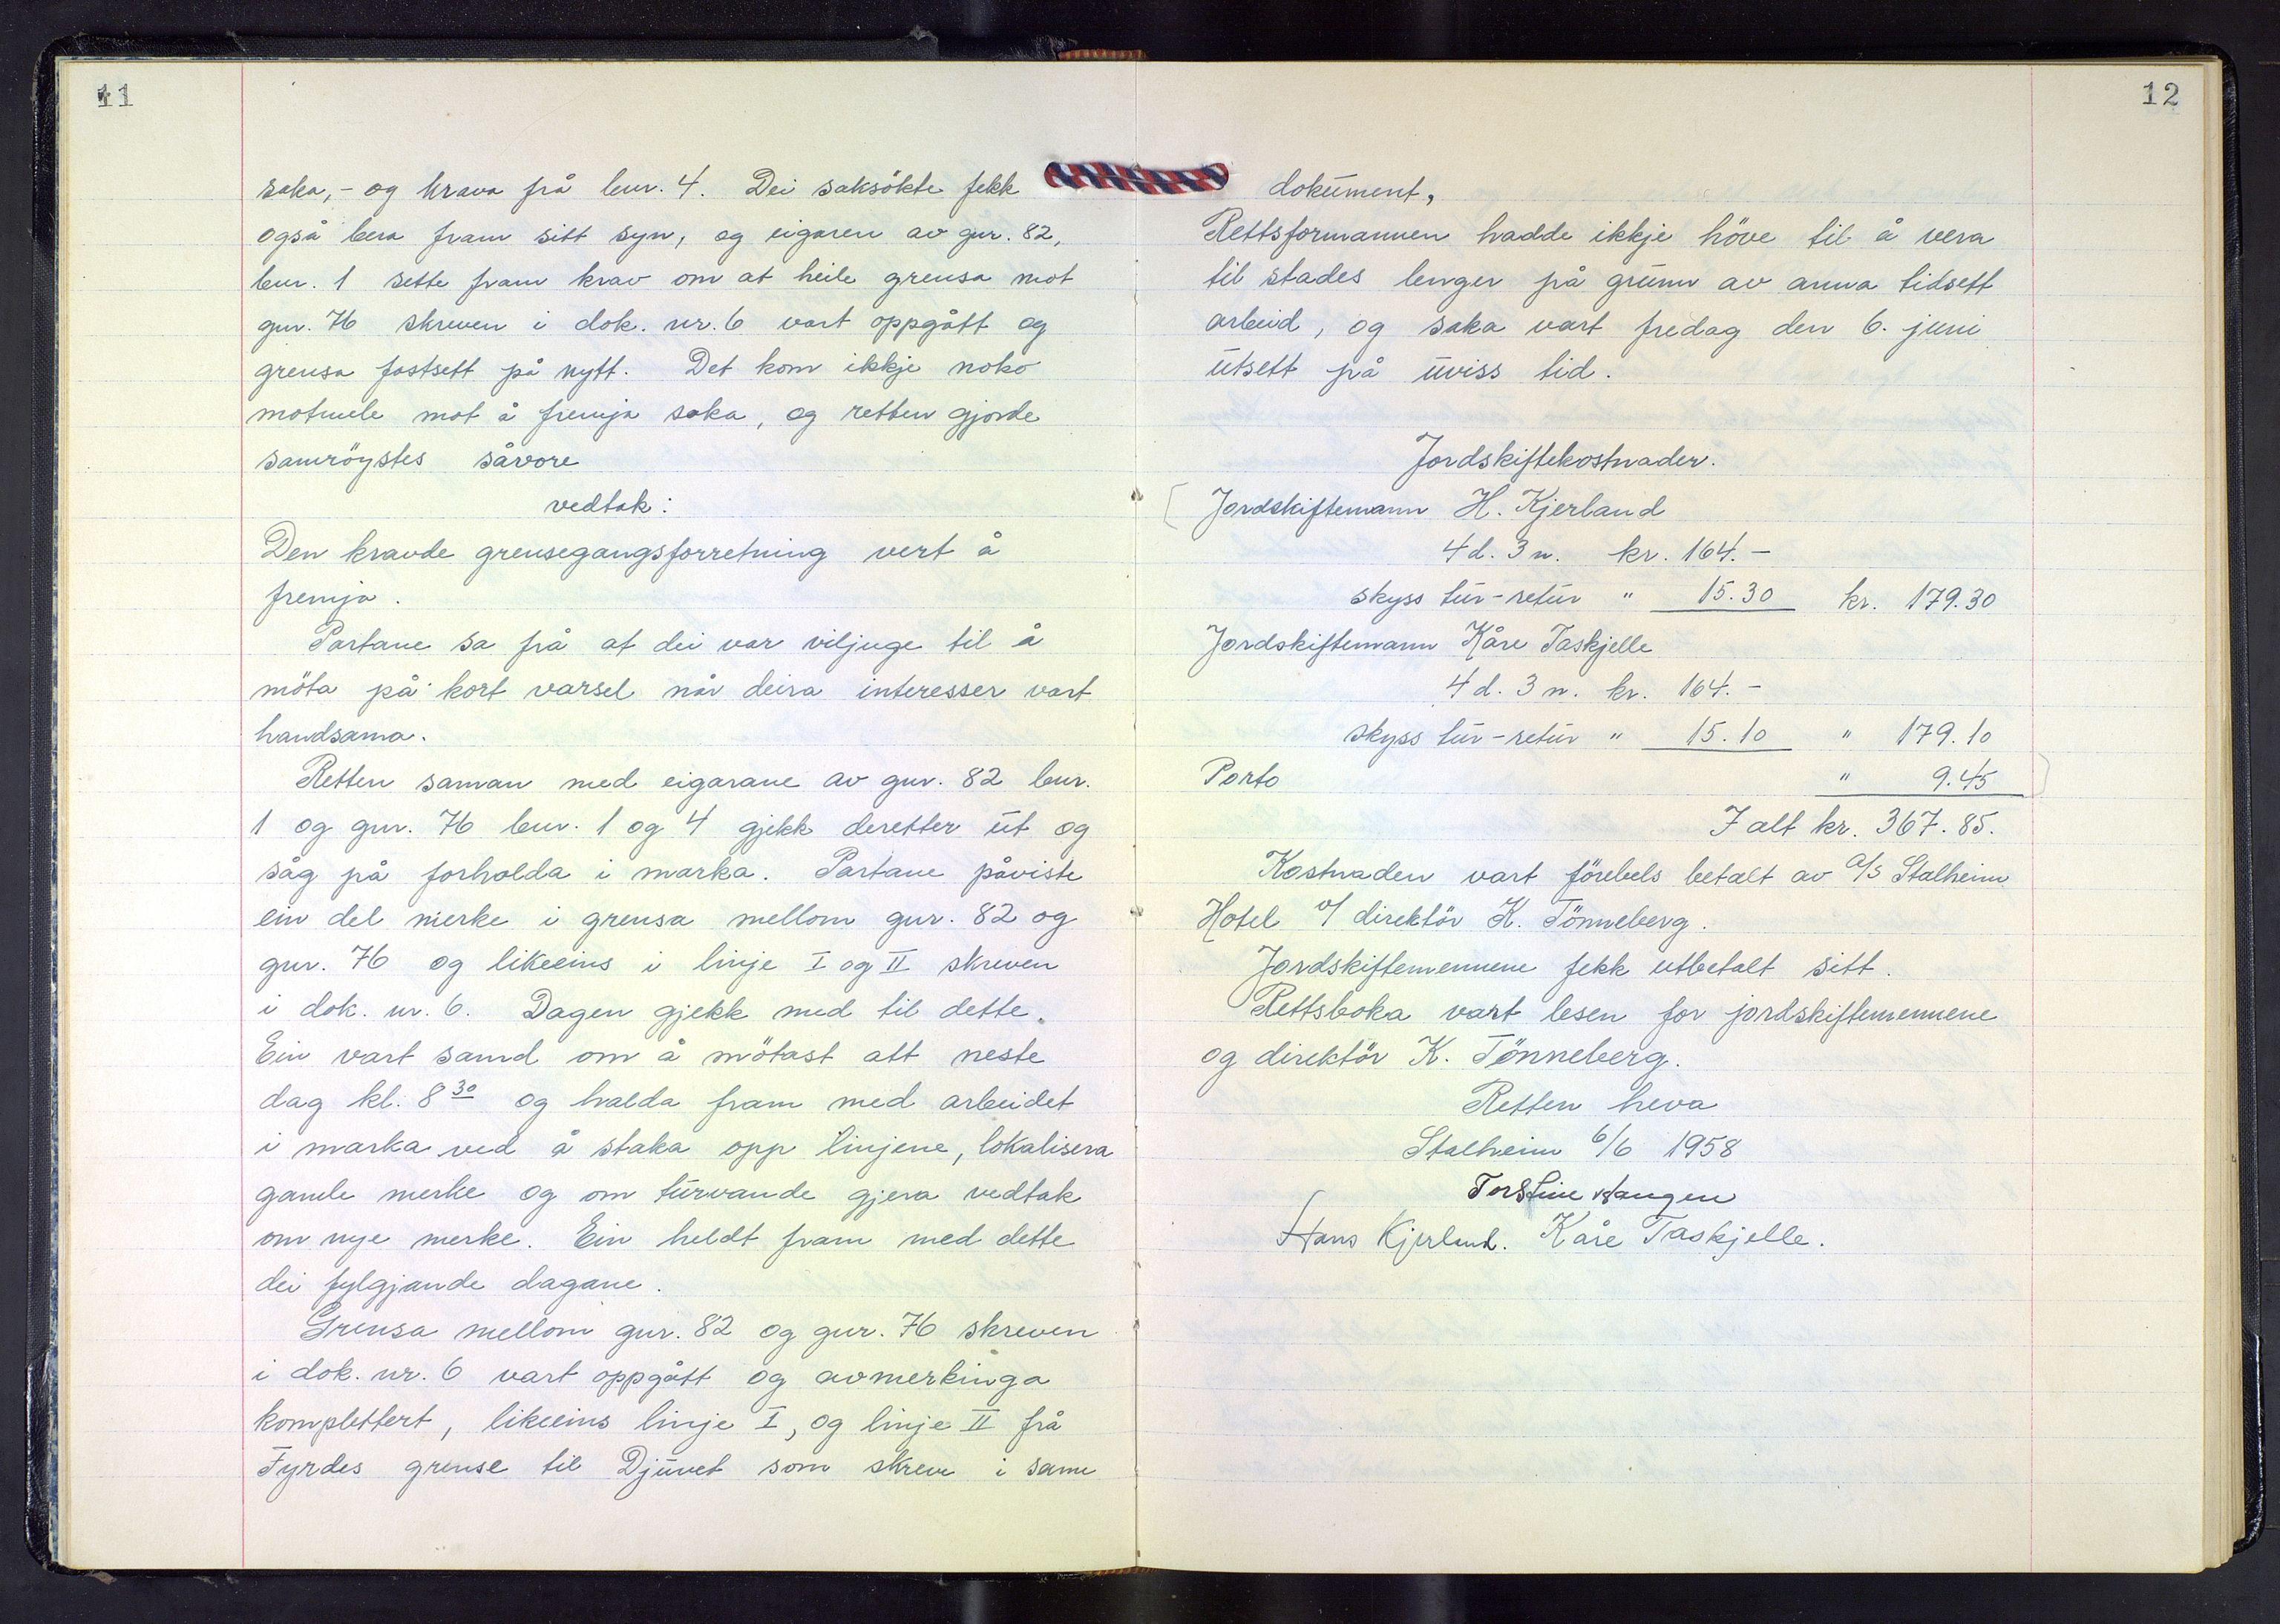 11
saka, - og krava frå bnr. 4. Dei saksökte fekk
også bera fram sitt syn, og eigaren av gnr. 82,
bnr. 1 sette fram krav om at heile grensa mot
gnr. 76 skreven i dok. nr. 6 vart oppgått og
grensa fastsett på nytt. Det kom ikkje noko
motmele mot å fremja saka, og retten gjorde
samröystes såvore
vedtak:
Den kravde grensegangsforretning vert å
fremja.
Partane sa frå at dei var viljuge til å
möta på kort varsel når deira interesser vart
handsama.
Retten saman med eigarane av gnr. 82 bnr.
1 og gnr. 76 bnr. 1 og 4 gjekk deretter ut og
såg på forholda i marka. Partane påviste
ein del merke i grensa mellom gnr. 82 og
gnr. 76 og likeeins i linje I og II skreven
i dok. nr. 6. Dagen gjekk med til dette.
Ein vart samd om å mötast att neste
dag kl. 8 30 og halda fram med arbeidet
i marka ved å staka opp linjene, lokalisera
gamle merke og om turvande gjera vedtak
om nye merke. Ein heldt fram med dette
dei fylgjande dagane.
Grensa mellom gnr. 82 og gnr. 76 skreven
i dok. nr. 6 vart oppgått og avmerkinga
komplettert, likeeins linje I, og linje II frå
Fyrdes grense til Djuvet som skreve i same
12
dokument,
Rettsformannen hadde ikkje höve til å vera
til stades lenger på grunn av anna tidsett
arbeid, og saka vart fredag den 6. juni
utsett på uviss tid.
Jordskiftekostnader.
Jordskiftemann H. Kjerland
4 d. 3 n. kr. 164.-
skyss tur-retur " 15.30 kr. 179.30
Jordskiftemann Kåre Taskjelle
4 d. 3 n. kr. 164.-
skyss tur-retur " 15.10 " 179.10
Porto " 9.45
I alt kr. 367.85.
Kostnaden vart förebels betalt av A/S Stalheim
Hotel v/ direktör K. Tönneberg.
Jordskiftemennene fekk utbetalt sitt.
Rettsboka vart lesen for jordskiftemennene
og direktör K. Tönneberg.
Retten heva
Stalheim 6/6 1958
Torstein Haugen
Hans Kjerland. Kåre Taskjelle.